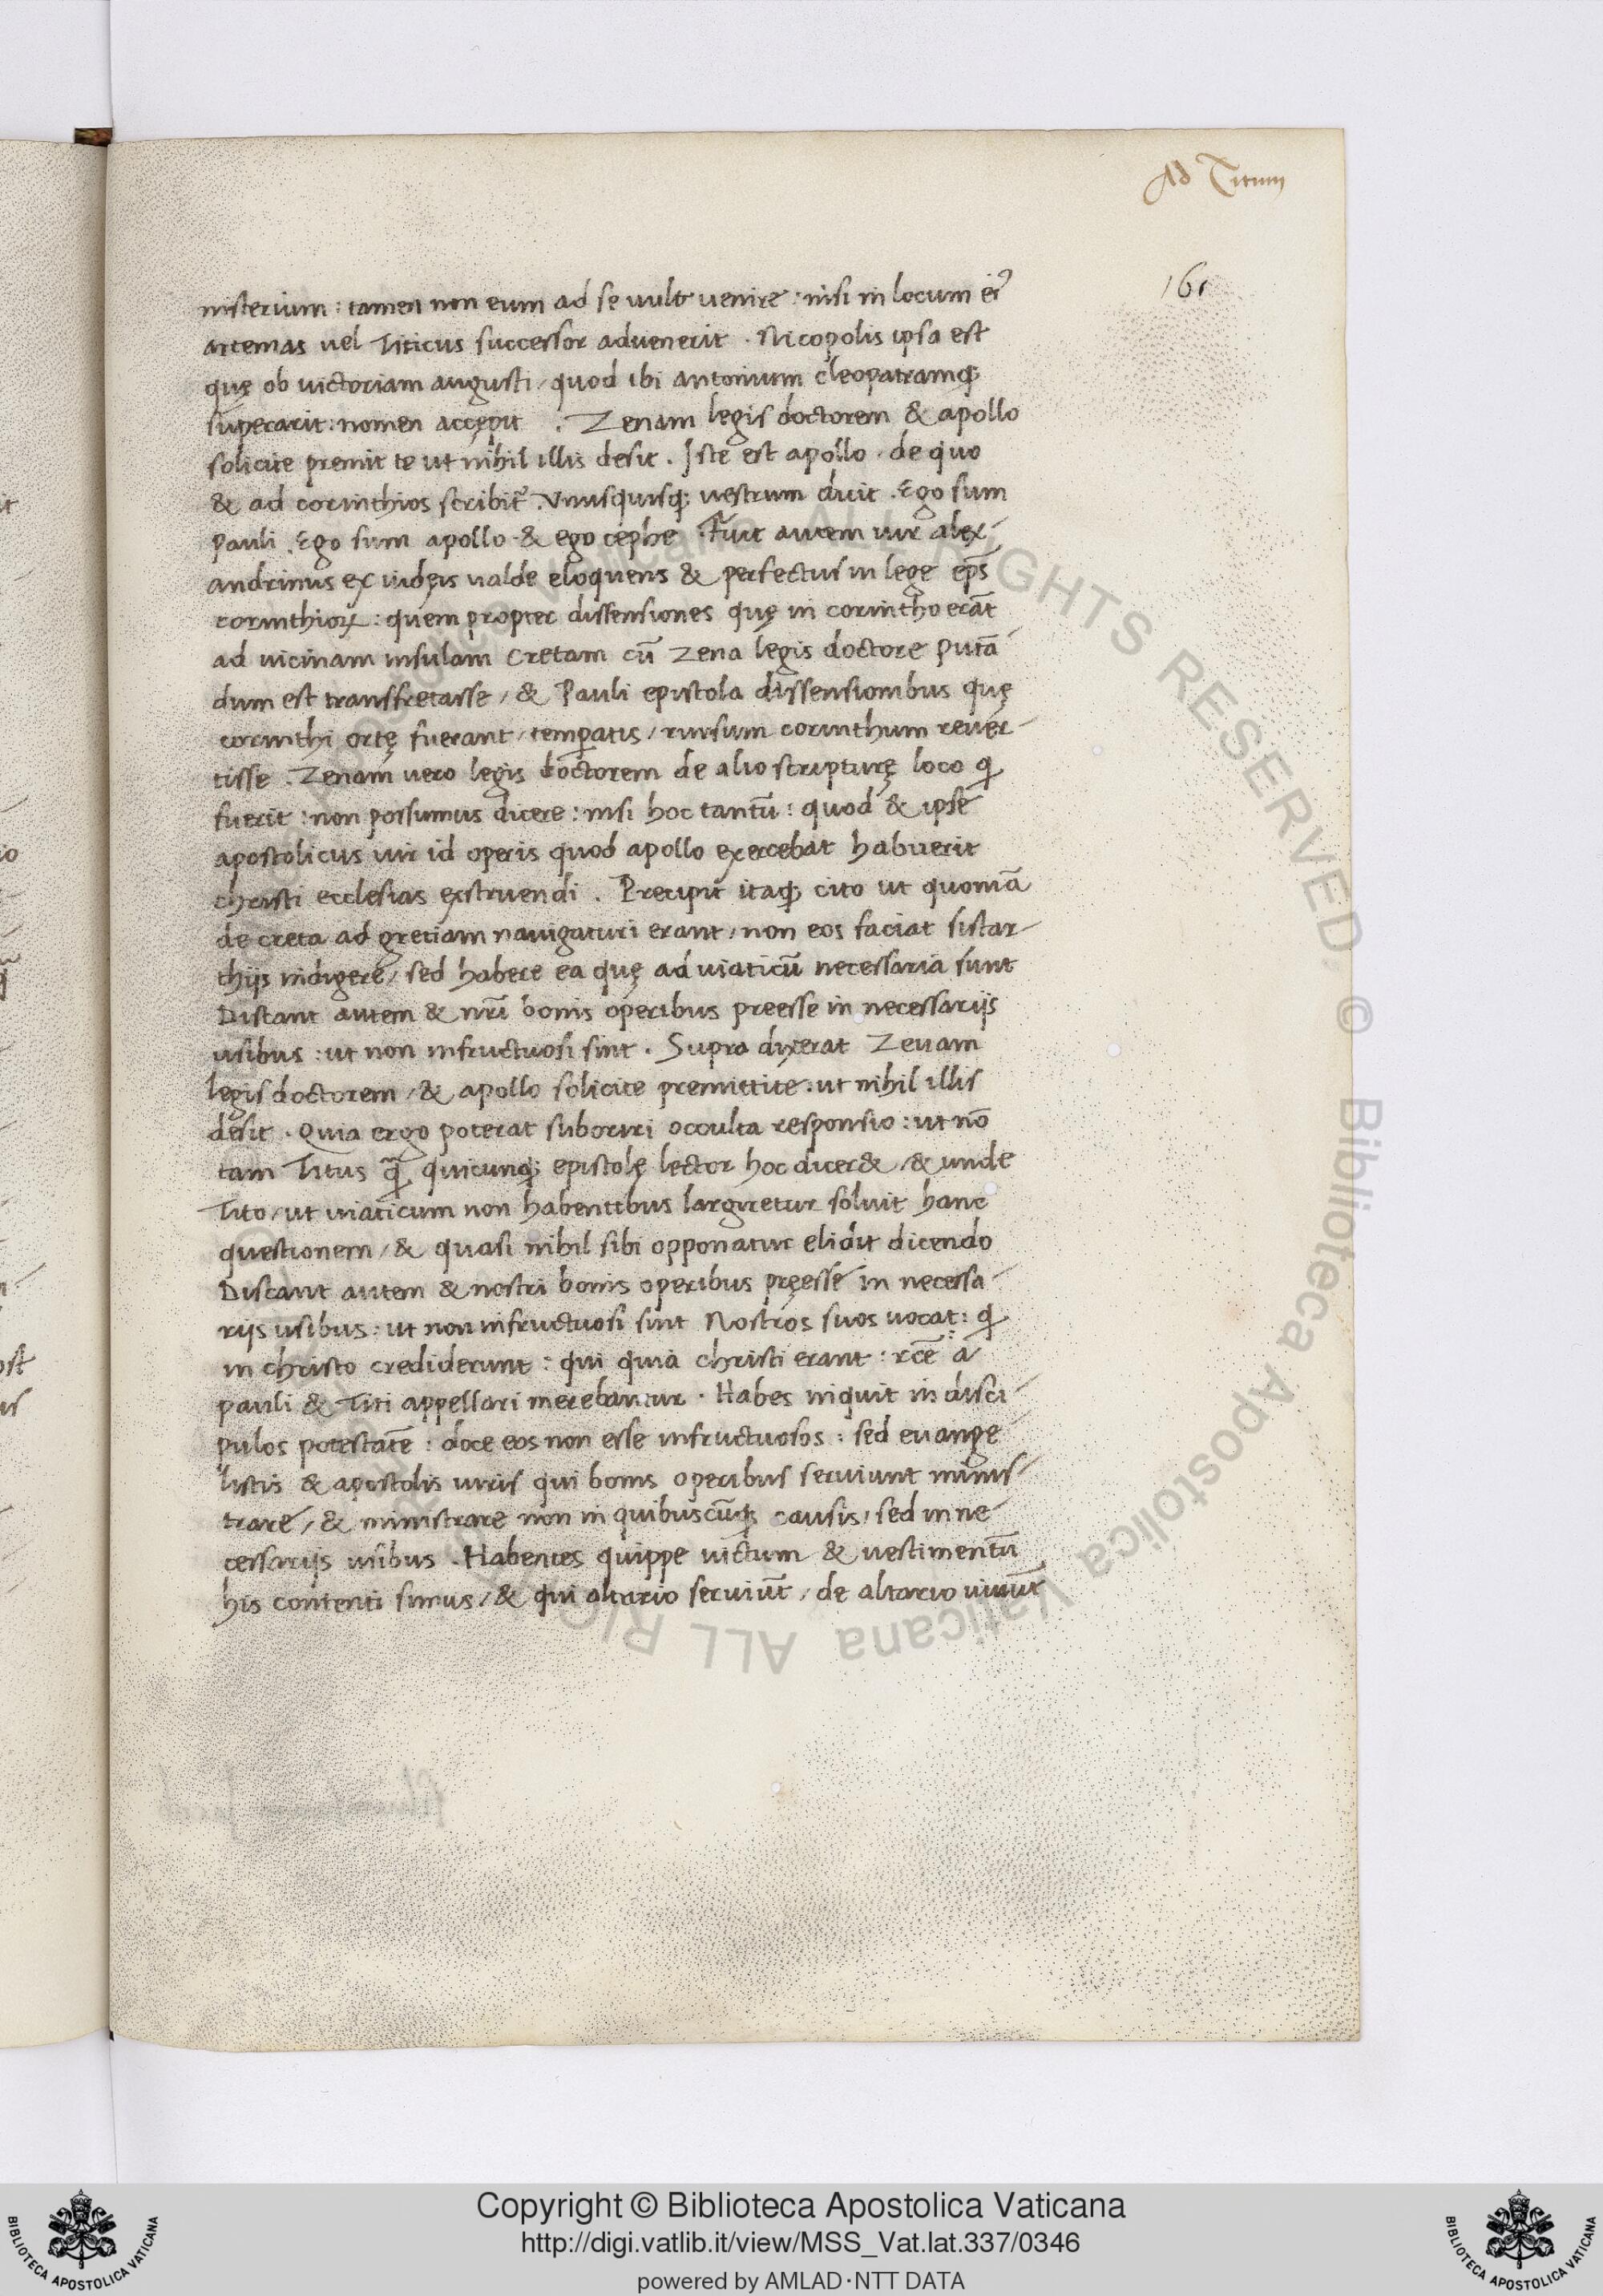 Ad Titum
161
nisterium : tamen non eum ad se uult uenire : nisi in locum eiꝰ
artemas uel Titicus successor aduenerit . Nicopolis ipsa est
quę ob uictoriam augusti / quod ibi antonium cleopatramq;
superarit : nomen accępit . Zenam legis doctorem & apollo
solicite premit te ut nihil illis desit . Iste est apollo . de quo
& ad corinthios scribit᷑ . Vnusquisq; uestrum dicit . Ego sum
pauli . Ego sum apollo . & ego cephe . Fuit autem uir alex-
andrinus ex iudęis ualde eloquens & perfectus in lege ep̅s
corinthioꝝ : quem propter dissensiones quę in corintho erāt
ad uicinam insulam Cretam cū Zena legis doctore putā
dum est transfretasse / & Pauli epistola dissensionibus quę
corinthi ortę fuerant / temꝑatis / rursum corinthum reuer-
tisse . Zenam uero legis doctorem de alio scripturę loco q
fuerit : non possumus dicere : nisi hoc tantū : quod & ipse
apostolicus uir id operis quod apollo exercebat habuerit
christi ecclesias exstruendi . Precipit itaq; cito ut quoniā
de creta ad gretiam nauigaturi erant / non eos faciat sistar-
thijs indigere / sed habere ea quę ad uiaticū necessaria sunt
Discant autem & nr̅i bonis operibus preesse in necessarijs
usibus : ut non infructuosi sint . Supra dixerat Zenam
legis doctorem / & apollo solicite premittite : ut nihil illis
desit . Quia ergo poterat suboriri occulta responsio : ut nō
tam Titus qꝫ̄ quicunq; epistolę lector hoc dicer& / & unde
Tito / ut uiaticum non habentibus largiretur soluit hanc
questionem / & quasi nihil sibi opponatur elidit dicendo
Discant autem & nostri bonis operibus pręesse in necessa-
rijs usibus : ut non infructuosi sint Nostros suos uocat : q
in christo crediderunt : qui quia christi erant : rc̅e a
pauli & Titi appellari merebantur . Habes inquit in disci-
pulos potestatē : doce eos non esse infructuosos : sed euange
listis & apostolis uiris qui bonis operibus seruiunt minis-
trare / & ministrare non in quibuscūq; causis / sed in ne-
cessarijs usibus . Habentes quippe uictum & uestimentū
his contenti simus / & qui altario seruiūt / de altario uiuūt
Copyright © Biblioteca Apostolica Vaticana
http://digi.vatlib.it/view/MSS_Vat.lat.337/0346
powered by AMLAD·NTT DATA